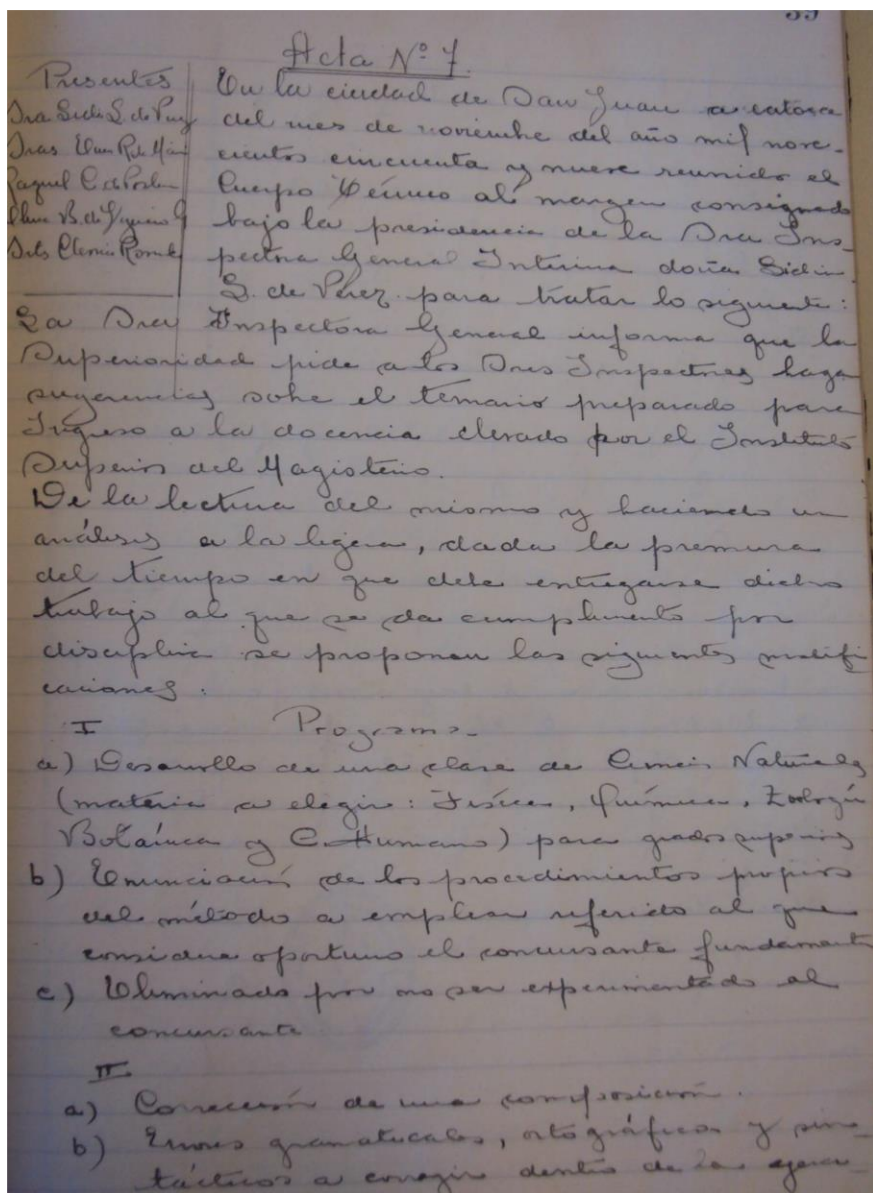 Acta Nº 7.
Presentes
Sra. Sidia L. de Perez
Sras
Raquel C. de
B. de
Srta Clemia
En la ciudad de San Juan a catorce
del mes de noviembre del año mil nove-
cientos cincuenta y nueve reunido el
Cuerpo Técnico al margen consignado
bajo la presidencia de la Sra Ins-
pectora General Interina doña Sidia
L. de Pérez para tratar lo siguiente:
La Sra Inspectora General informa que la
Superioridad pide a los Sres Inspectores haga
sugerencias sobre el temario preparado para
Ingreso a la docencia elevado por el Instituto
Superior del Magisterio.
De la lectura del mismo y haciendo un
análisis a la ligera, dada la premura
del tiempo en que debe entregarse dicho
trabajo al que se da cumplimento por
disciplina se proponen las siguientes modifi
caciones:
I Programa.-
a) Desarrollo de una clase de Ciencias Naturales
(materia a elegir: Física, Química, Zoología
Botánica y C. Humano) para grados superiores
b) Enunciación de los procedimientos propios
del método a emplear referido al que
considera oportuno el concursante fundamente
c) Eliminado por no ser experimentado el
concursante
II
a) Corrección de una composición.
b) Errores gramaticales, ortográficos y sin-
tácticos a corregir dentro de la ejerci-